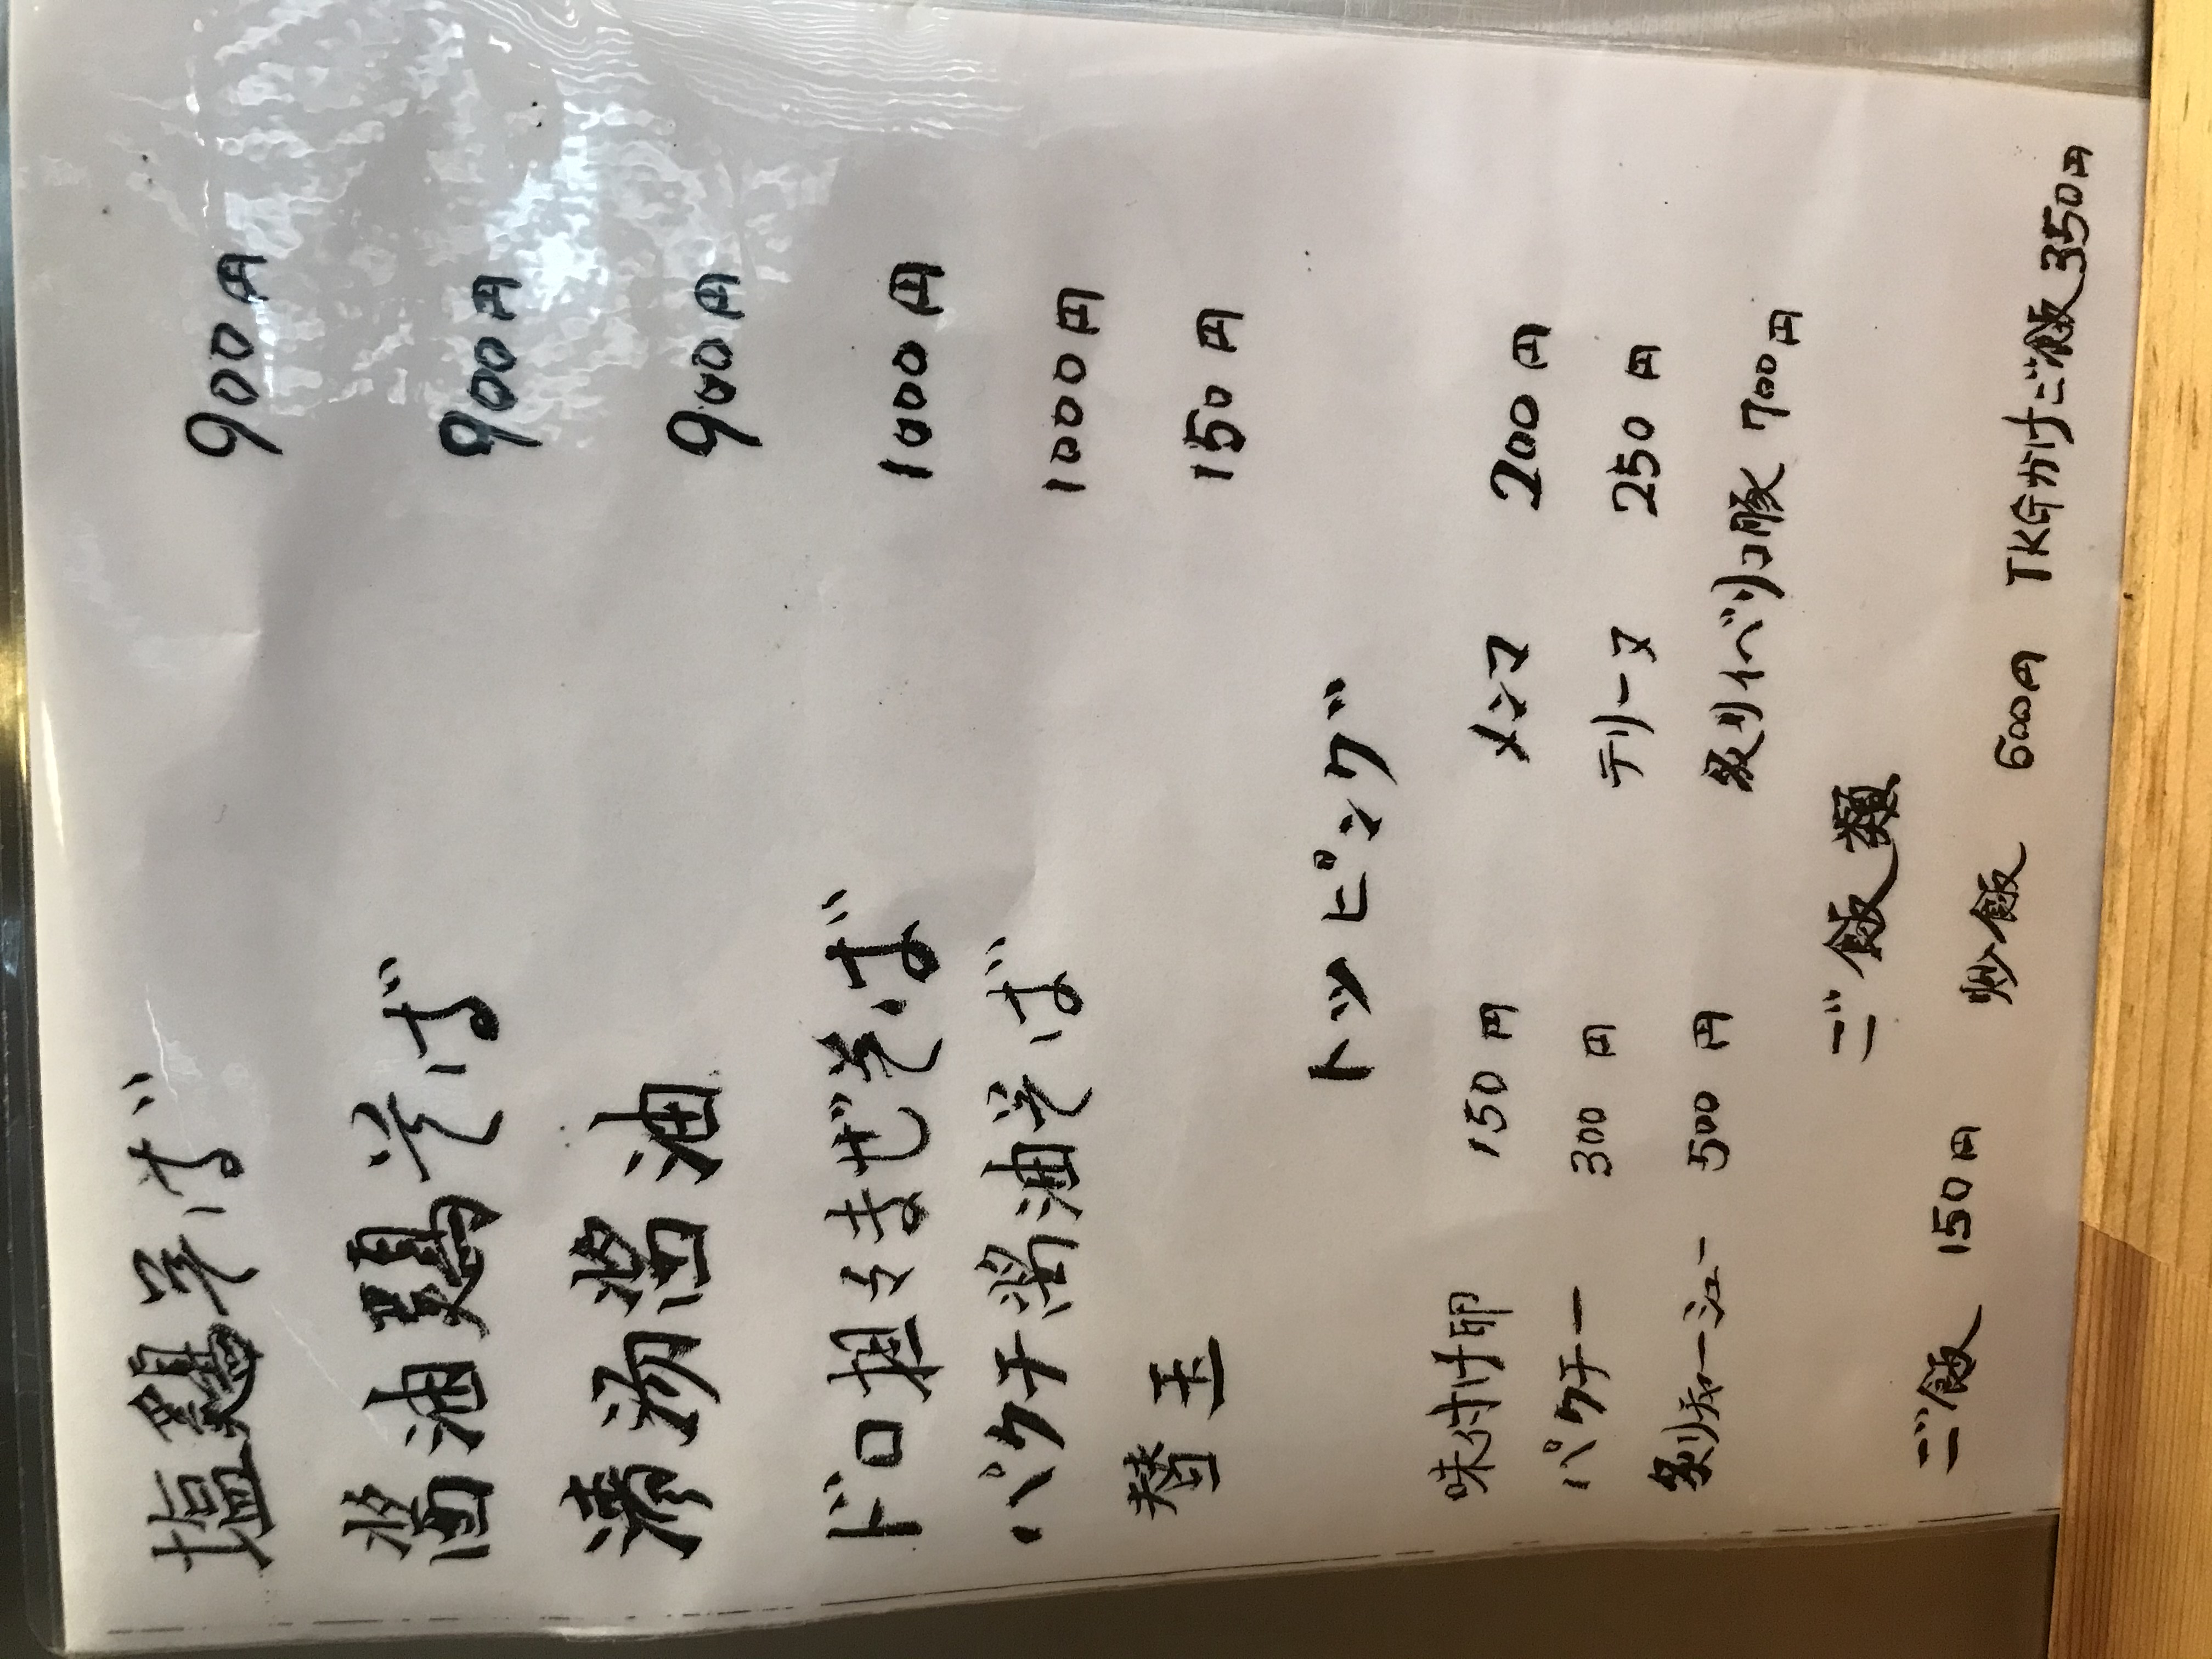 塩鷄そば 900円
醤油鷄そば 900円
清湯醤油 900円
ドロ担々まぜそば 1000円
パクチ醤油そば 1000円
替玉 150円
トッピング
味付け卵 150円 メンマ 200円
パクチー 300円 テリーヌ 250円
炙りチャーシュー 500円 炙りイベリコ豚 700円
ご飯類
ご飯 150円 炒飯 600円 TKGかけご飯 350円